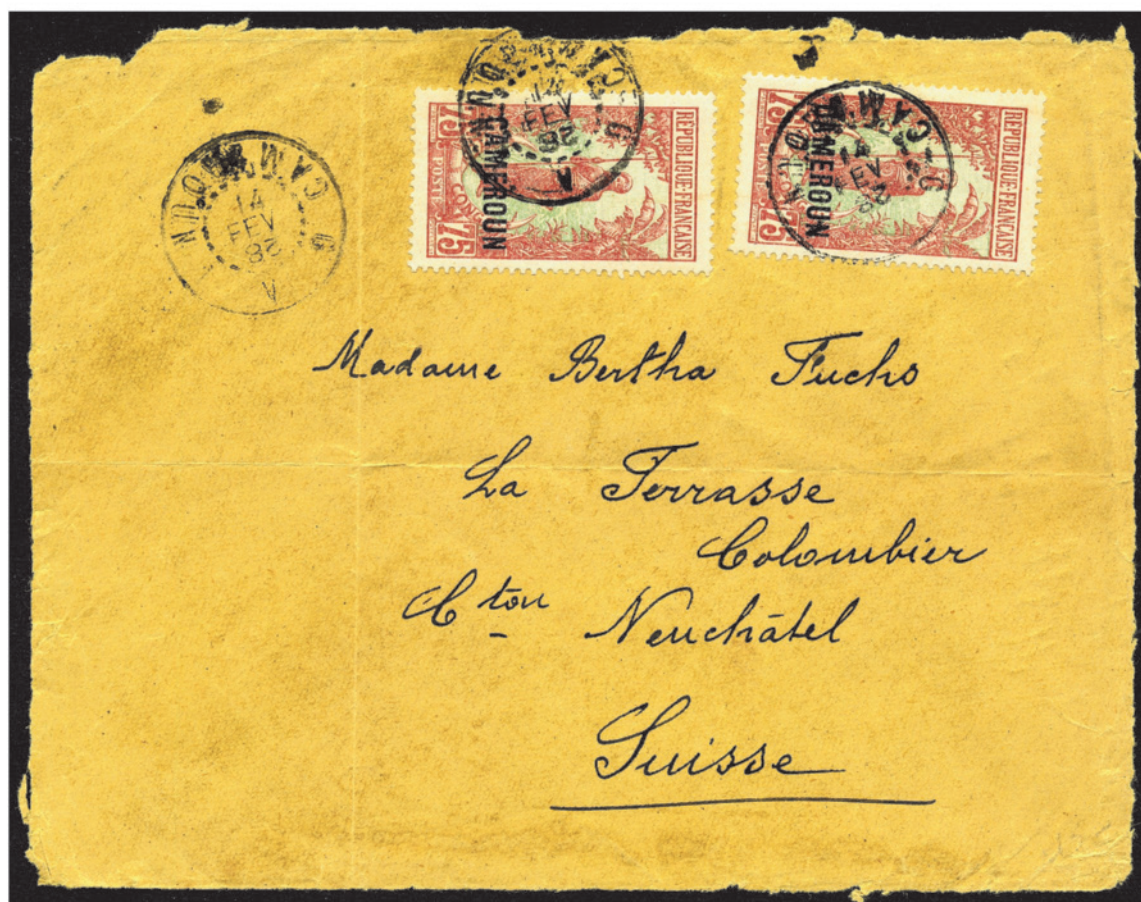 CAMEROUN
14
FEV
A
RÉPUBLIQUE·FRANÇAISE
CAMEROUN
75
75
POSTES
RÉPUBLIQUE·FRANÇAISE
CAMEROUN
75
75
POSTES
Madame Bertha Fuchs
La Terrasse
Colombier
Cton Neuchâtel
Suisse